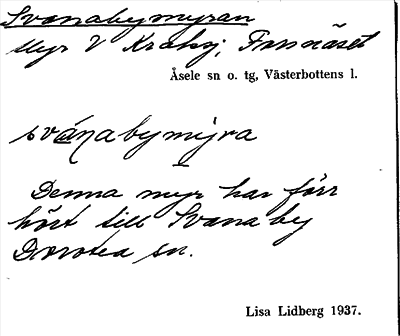 Svanabymyran
Myr V Kraksj, Fannäset
Åsele sn o. tg, Västerbottens l.
svánabymyra
Denna myr har förr
hört till Svanaby
Dorotea sn.
Lisa Lidberg 1937.